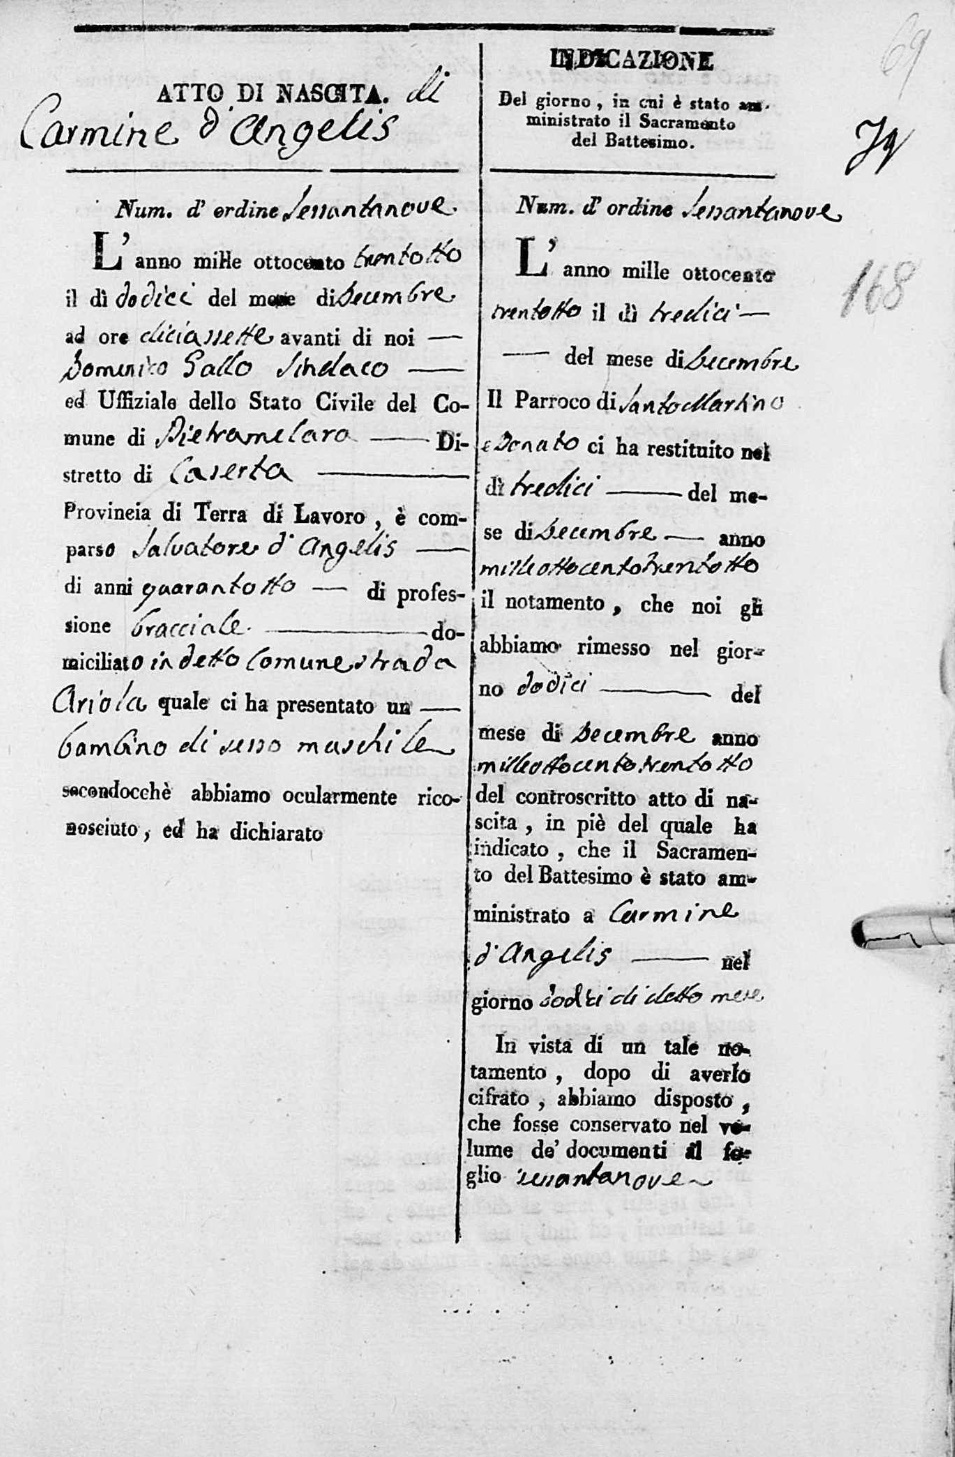 ATTO DI NASCITA. di
Carmine d'Angelis
Num. d'ordine sessantanove
L'anno mille ottocento trentotto
il dì dodici del mese di Decembre
ad ore diciassette avanti di noi —
Domenico Gallo Sindaco —
ed Uffiziale dello Stato Civile del Co-
mune di Pietramelara — Di-
stretto di Caserta —
Provincia di Terra di Lavoro, è com-
parso Salvatore d'Angelis —
di anni quarantotto — di profes-
sione bracciale — do-
miciliato in detto Comune strada
Ariola quale ci ha presentato un —
bambino di sesso maschile
secondocchè abbiamo ocularmente rico-
nosciuto, ed ha dichiarato
INDICAZIONE
Del giorno, in cui è stato am-
ministrato il Sacramento
del Battesimo.
Num. d'ordine sessantanove
L'anno mille ottocento
trentotto il dì tredici —
— del mese di Decembre
Il Parroco di Santo Martino
e Donato ci ha restituito nel
dì tredici — del me-
se di Decembre — anno
milleottocentotrentotto
il notamento, che noi gli
abbiamo rimesso nel gior-
no dodici — del
mese di Decembre anno
milleottocentotrentotto
del controscritto atto di na-
scita, in piè del quale ha
indicato, che il Sacramen-
to del Battesimo è stato am-
ministrato a Carmine
d'Angelis — nel
giorno dodici di detto mese
In vista di un tale no-
tamento, dopo di averlo
cifrato, abbiamo disposto,
che fosse conservato nel vo-
lume de' documenti al fo-
glio sessantanove
69
168